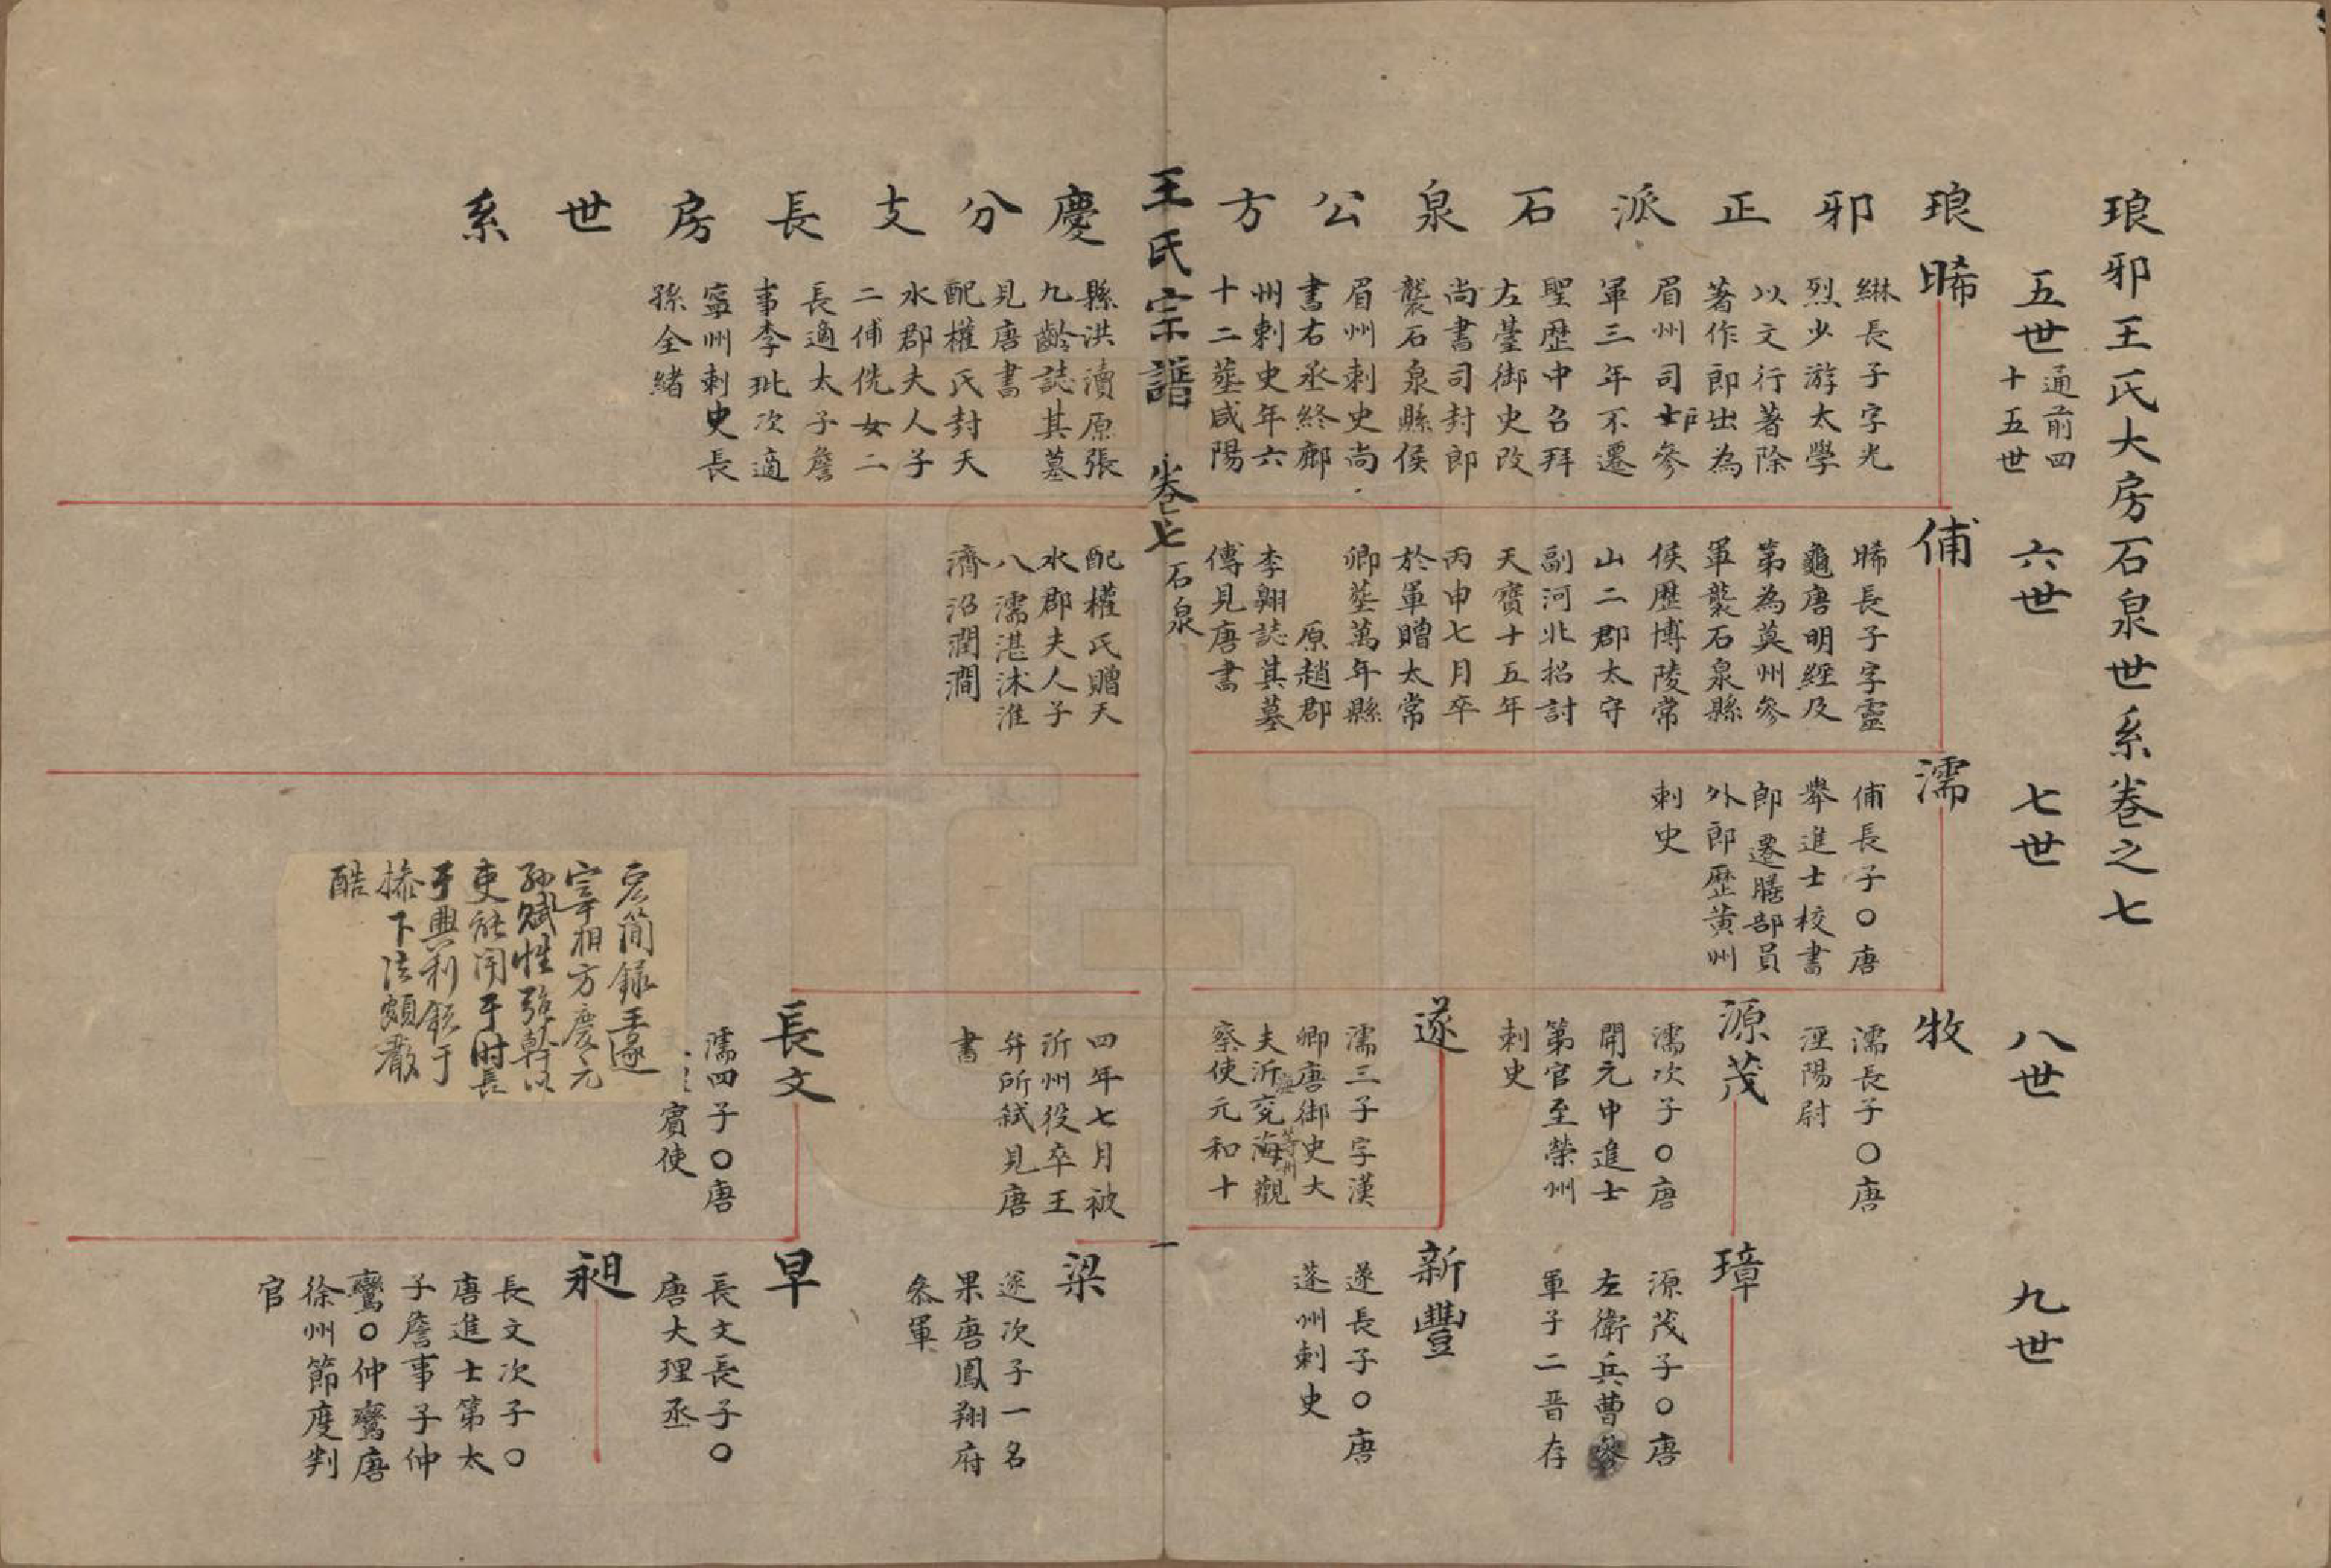 琅邪王氏大房石泉世系卷之七
五世
通前四
十五世
六世
七世
八世
九世
琅邪正派石泉公方慶分支長房世系
晞
綝長子字光
烈少游太學
以文行著除
著作郎出為
眉州司士參
軍三年不遷
聖歷中召拜
左臺御史改
尚書司封郎
襲石泉縣侯
眉州刺史尚
書右丞終鄜
州刺史年六
十二葬咸陽
縣洪瀆原張
九齡誌其墓
見唐書
配權氏封天
水郡夫人子
二俌侁女二
長適太子詹
事李玼次適
寧州刺史長
孫全緒
俌
晞長子字靈
龜唐明經及
第為莫州參
軍襲石泉縣
侯歷博陵常
山二郡太守
副河北招討
天寶十五年
丙申七月卒
於軍贈太常
卿葬萬年縣
原趙郡
李翱誌其墓
傳見唐書
配權氏贈天
水郡夫人子
八濡湛沐淮
濟沿潤澗
濡
俌長子○唐
舉進士校書
郎遷膳部員
外郎歷黃州
刺史
牧
濡長子○唐
涇陽尉
源茂
濡次子○唐
開元中進士
第官至榮州
刺史
遂
濡三子字漢
卿唐御史大
夫沂兗海觀
等州
察使元和十
四年七月被
沂州役卒王
弁所弒見唐
書
長文
濡四子○唐
賓使
璋
源茂子○唐
左衛兵曹參
軍子二晋存
新豐
遂長子○唐
蓬州刺史
梁
遂次子一名
果唐鳳翔府
參軍
早
長文長子○
唐大理丞
昶
長文次子○
唐進士第太
子詹事子仲
鸞○仲鸞唐
徐州節度判
官
王氏宗譜
卷七
石泉
一
宏簡錄王遂
宰相方慶元
孫賦性強幹以
吏能聞于時長
于興利銳于
操下法頗嚴
酷